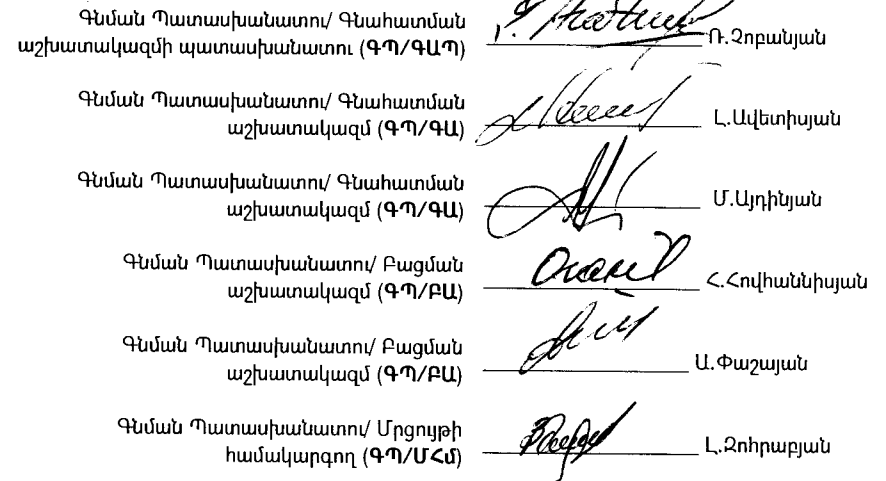 Գնման Պատասխանատու/ Գնահատման
աշխատակազմի պատասխանատու (ԳՊ/ԳԱՊ) Ռ.Չոբանյան
Գնման Պատասխանատու/ Գնահատման
աշխատակազմ (ԳՊ/ԳԱ) Լ.Ավետիսյան
Գնման Պատասխանատու/ Գնահատման
աշխատակազմ (ԳՊ/ԳԱ) Մ.Այդինյան
Գնման Պատասխանատու/ Բացման
աշխատակազմ (ԳՊ/ԲԱ) Հ.Հովհաննիսյան
Գնման Պատասխանատու/ Բացման
աշխատակազմ (ԳՊ/ԲԱ) Ա.Փաշայան
Գնման Պատասխանատու/ Մրցույթի
համակարգող (ԳՊ/ՄՀմ) Լ.Զոհրաբյան